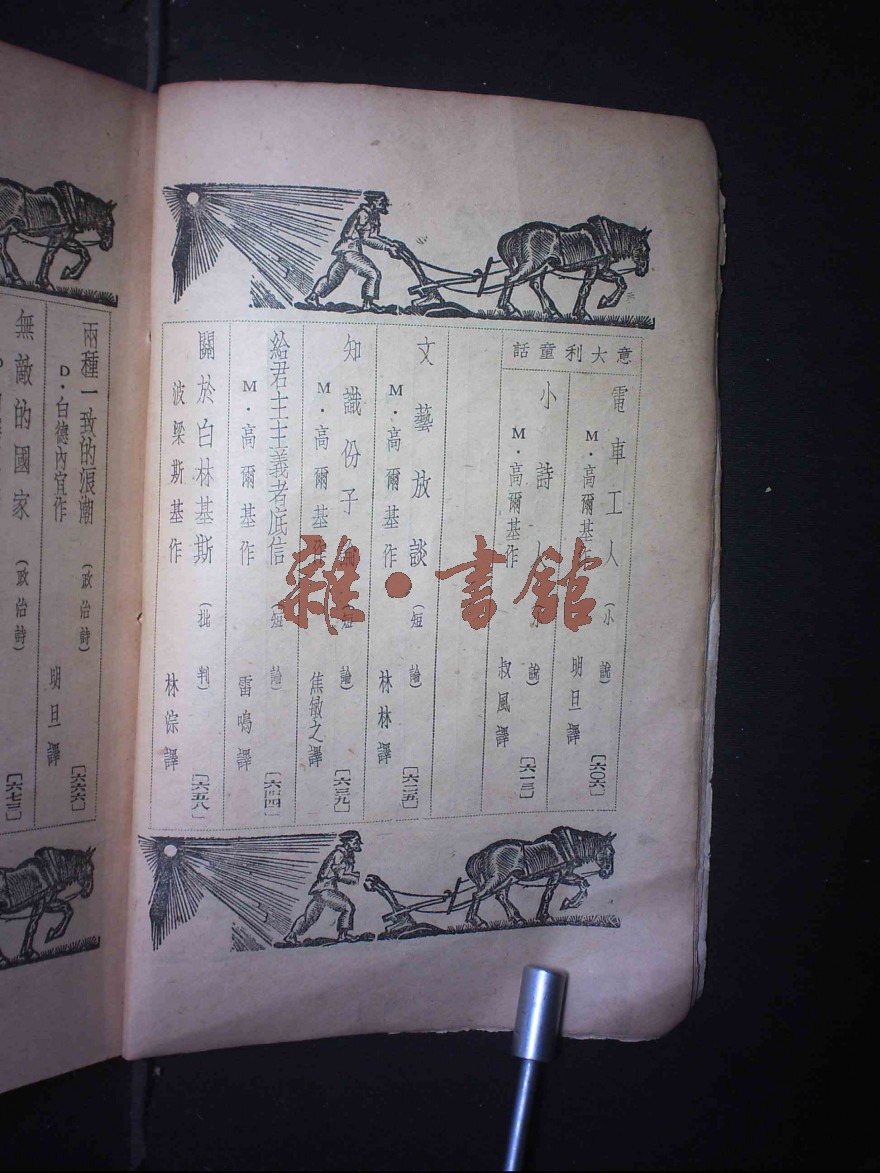 意大利童話
電車工人(小說)
M·高爾基作
明旦譯
[六〇六]
小詩人(小說)
M·高爾基作
叔風譯
[六一三]
文藝放談(短論)
M·高爾基作
林林譯
[六二五]
知識份子論(短論)
M·高爾基作
焦敏之譯
[六三九]
給君主主義者底信(短論)
M·高爾基作
雷鳴譯
[六四四]
關於白林基斯(批判)
波梁斯基作
林淙譯
[六五八]
兩種一致的浪潮(政治詩)
D·白德內宜作
明旦譯
[六六六]
無敵的國家(政治詩)
[六七三]
雜·書館